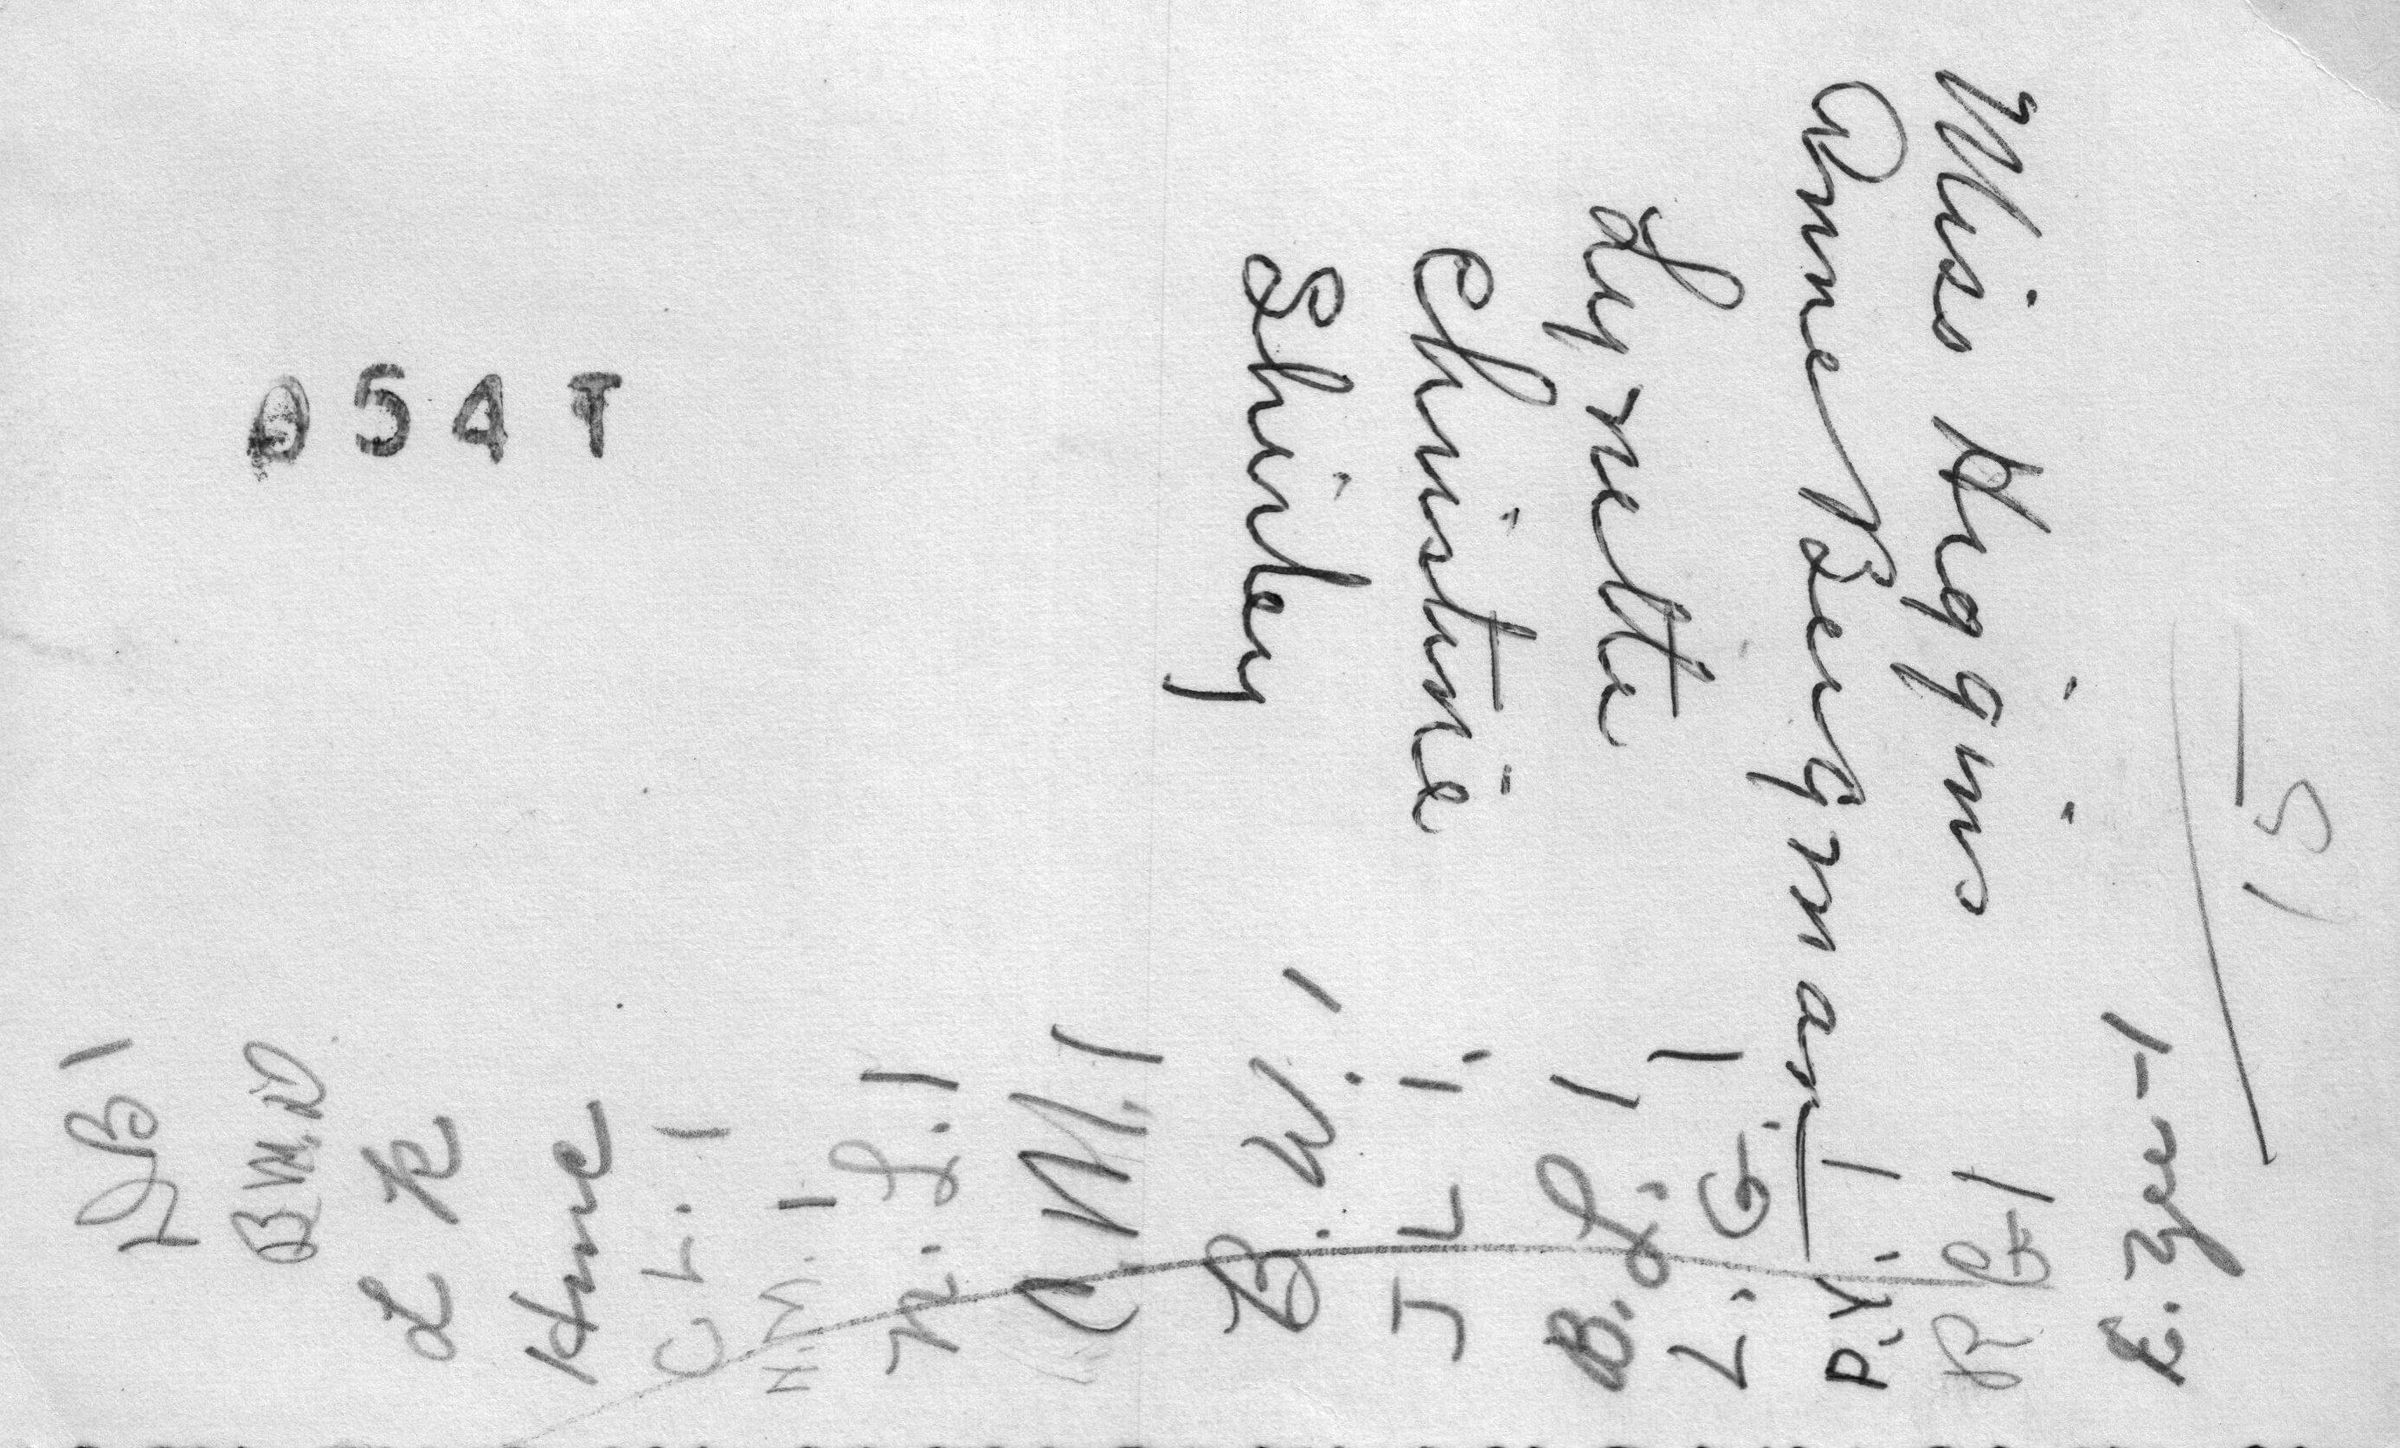 Miss Higgins
Anne Bergman
Lynette
Christine
Shirley
054T
15
B 1
B M. D
L K
C L. 1
H. M. 1
N. L. 1
C. M. 1
B. W. 1
J L 1
B. L. 1
L. G. 1
P. Y. 1
R B 1
E. Zee - 1